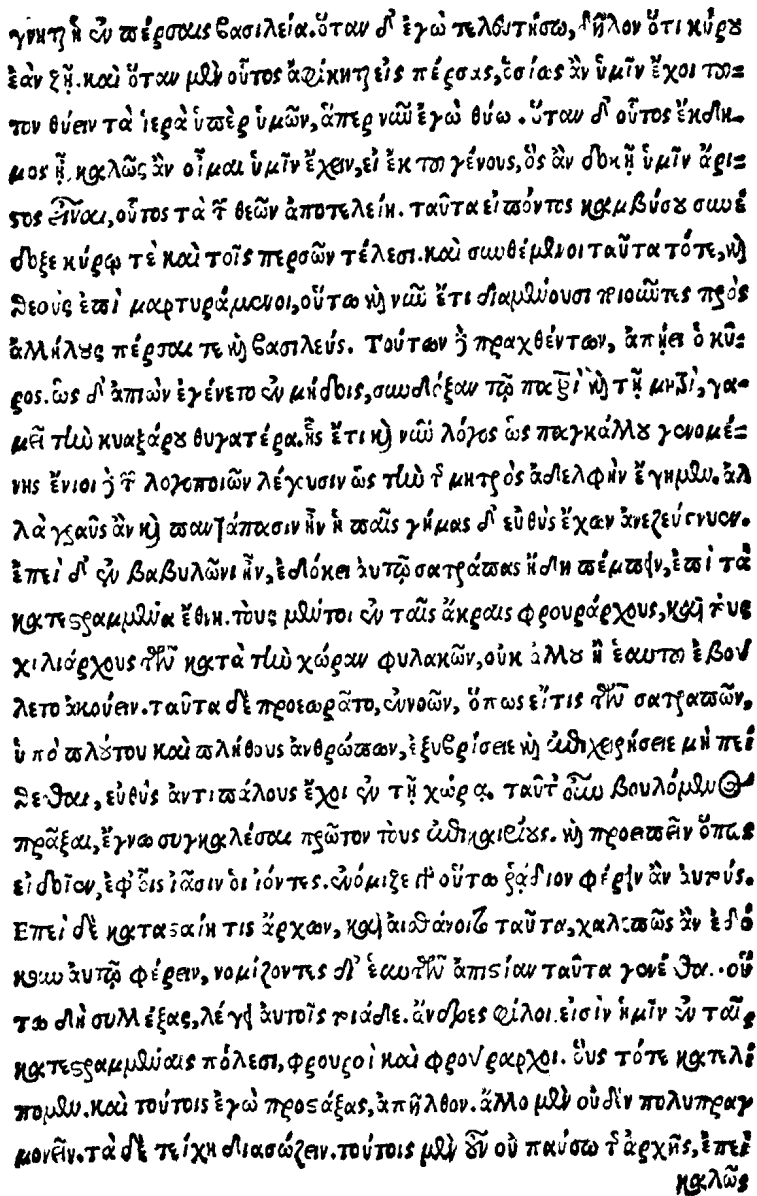 γνηται ἡ ἐν πέρσαις βασιλεία. ὅταν δ' ἐγὼ τελευτήσω, δῆλον ὅτι κύρου
ἐὰν ζῇ. καὶ ὅταν μὲν οὗτος ἀφίκηται εἰς πέρσας, ὁσίως ἂν ὑμῖν ἔχοι τοῦ-
τον θύειν τὰ ἱερὰ ὑπὲρ ὑμῶν, ἅπερ νῦν ἐγὼ θύω. ὅταν δ' οὗτος ἔκδη-
μος ᾖ, καλῶς ἂν οἶμαι ὑμῖν ἔχειν, εἰ ἐκ τοῦ γένους, ὃς ἂν δοκῇ ὑμῖν ἄρι-
στος εἶναι, οὗτος τὰ τῶν θεῶν ἀποτελείη. ταῦτα εἰπόντος καμβύσου συνέ
δοξε κύρῳ τὲ καὶ τοῖς περσῶν τέλεσι. καὶ συνθέμενοι ταῦτα τότε, καὶ
θεοὺς ἐπὶ μαρτυράμενοι, οὕτω καὶ νῦν ἔτι διαμένουσι ποιοῦντες πρὸς
ἀλλήλους πέρσαι τε καὶ βασιλεύς. Τούτων δὲ πραχθέντων, ἀπῄει ὁ κῦ-
ρος. ὡς δ' ἀπιὼν ἐγένετο ἐν μήδοις, συνδόξαν τῷ πατρὶ καὶ τῇ μητρὶ, γα-
μεῖ τὴν κυαξάρου θυγατέρα. ἧς ἔτι καὶ νῦν λόγος ὡς παγκάλου γενομέ-
νης ἔνιοι δὲ τῶν λογοποιῶν λέγουσιν ὡς τὴν τῆς μητρὸς ἀδελφὴν ἔγημεν. ἀλ
λὰ γραῦς ἂν καὶ παντάπασιν ἦν ἡ παῖς γήμας δ' εὐθὺς ἔχων ἀνεζεύγνυεν.
ἐπεὶ δ' ἐν βαβυλῶνι ἦν, ἐδόκει αὐτῷ σατράπας ἤδη πέμπειν, ἐπὶ τὰ
κατεστραμμένα ἔθνη. τοὺς μέντοι ἐν ταῖς ἄκραις φρουράρχους, καὶ τοὺς
χιλιάρχους τῶν κατὰ τὴν χώραν φυλακῶν, οὐκ ἄλλου ἢ ἑαυτοῦ ἐβού
λετο ἀκούειν. ταῦτα δὲ προεωρᾶτο, ἐννοῶν, ὅπως εἴ τις τῶν σατραπῶν,
ὑπὸ πλούτου καὶ πλήθους ἀνθρώπων, ἐξυβρίσειε καὶ ἐπιχειρήσειε μὴ πεί
θεσθαι, εὐθὺς ἀντιπάλους ἔχοι ἐν τῇ χώρᾳ. ταῦτ' οὖν βουλόμενος
πρᾶξαι, ἔγνω συγκαλέσαι πρῶτον τοὺς ἐπικαιρίους. καὶ προειπεῖν ὅπως
εἰδοῖεν, ἐφ' οἷς ἴασιν οἱ ἰόντες. ἐνόμιζε γὰρ οὕτω ῥάδιον φέρειν ἂν αὐτούς.
Ἐπεὶ δὲ κατασταίη τις ἄρχων, καὶ αἰσθάνοιτο ταῦτα, χαλεπῶς ἂν ἐδό
κουν αὐτῷ φέρειν, νομίζοντες δι' ἑαυτῶν ἀπιστίαν ταῦτα γενέσθαι. οὕ
τω δὴ συλλέξας, λέγει αὐτοῖς τοιάδε. ἄνδρες φίλοι. εἰσὶν ἡμῖν ἐν ταῖς
κατεστραμμέναις πόλεσι, φρουροὶ καὶ φρούραρχοι. οὓς τότε κατελί
πομεν. καὶ τούτοις ἐγὼ προστάξας, ἀπῆλθον. ἄλλο μὲν οὐδὲν πολυπραγ
μονεῖν. τὰ δὲ τείχη διασώζειν. τούτοις μὲν οὖν οὐ παύσω τῆς ἀρχῆς, ἐπεὶ
καλῶς